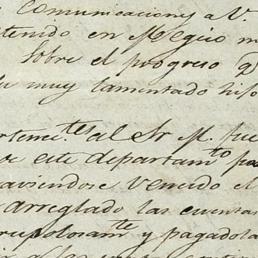 Comunicaciones a V.
tenido en Megico m
sobre el progreso q
su muy lamentado hijo
rtenites al Sr M. fue
e este departamto pa
aviendose vencido el
arreglado las cuentas
rupolosamte y pagadola